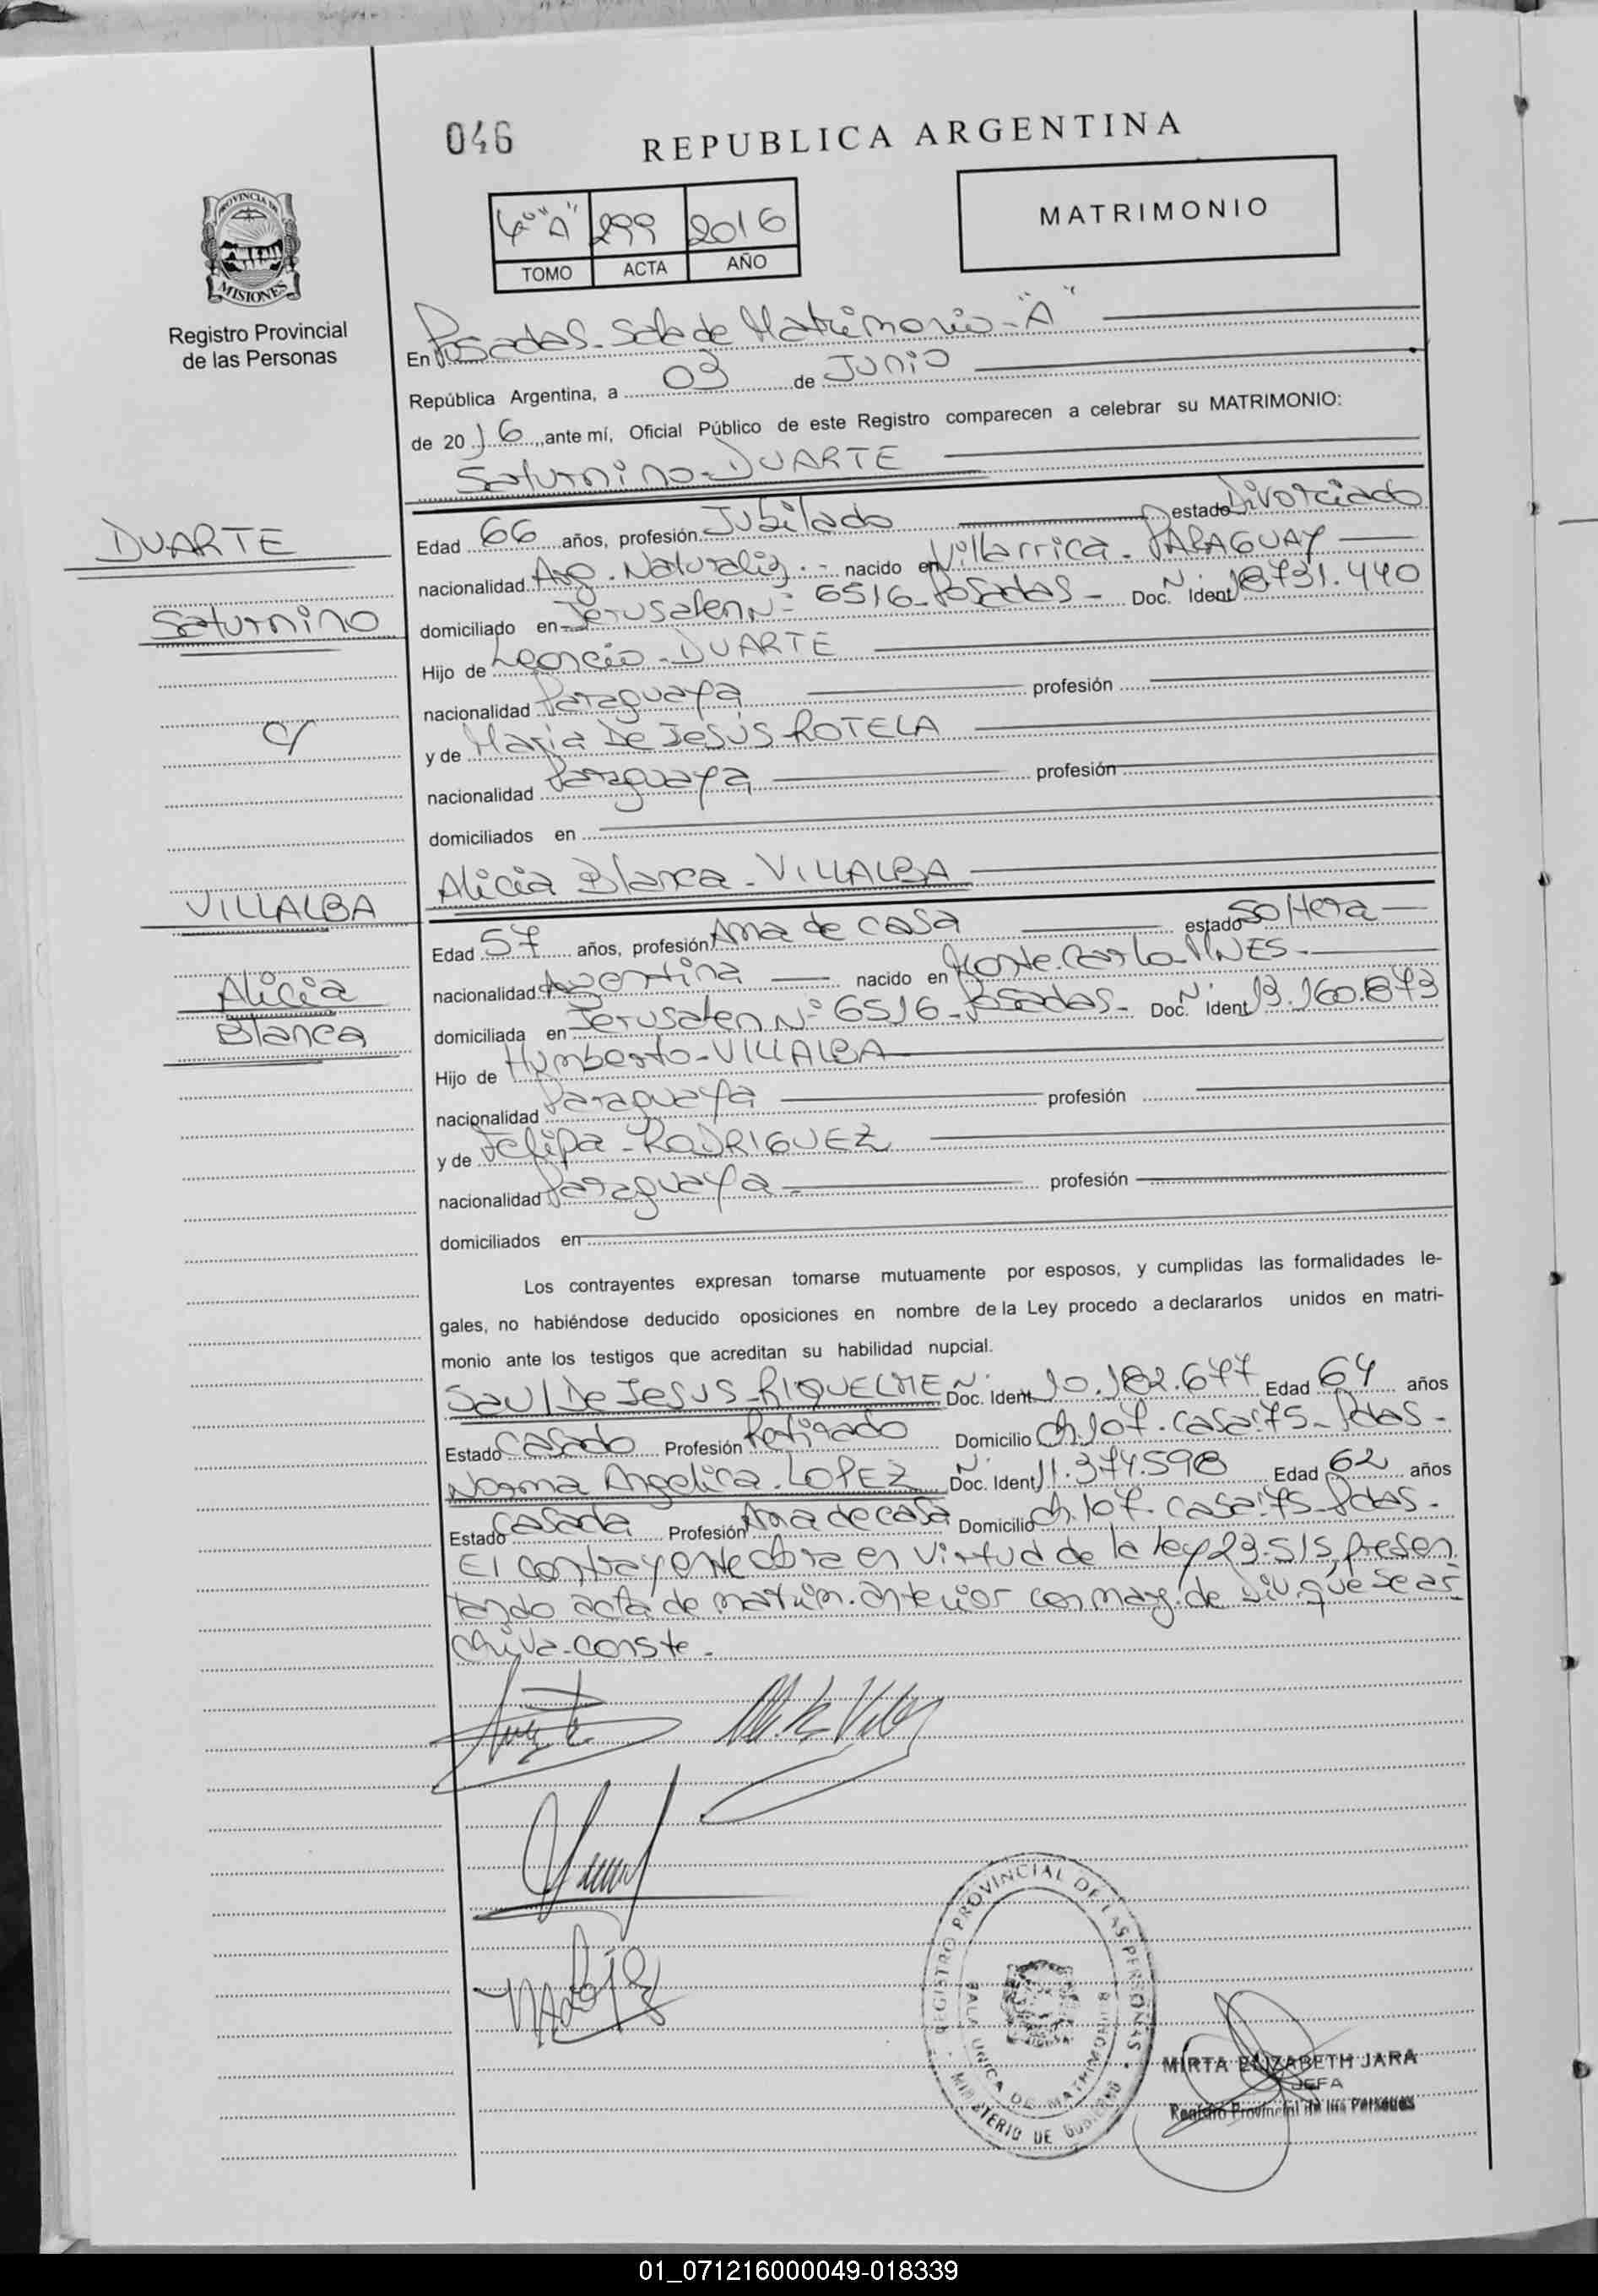 046
REPUBLICA ARGENTINA
PROVINCIA DE
MISIONES
Registro Provincial
de las Personas
4º "A" 299 2016
TOMO ACTA AÑO
MATRIMONIO
En Posadas - Sala de Matrimonio - "A"
República Argentina, a 03 de Junio
de 2016, ante mí, Oficial Público de este Registro comparecen a celebrar su MATRIMONIO:
Saturnino - DUARTE
DUARTE
Saturnino
c/
Edad 66 años, profesión Jubilado estado Divorciado
nacionalidad Arg. Naturaliz. - nacido en Villarrica - PARAGUAY
domiciliado en Jerusalen Nº 6516 - Posadas - Doc. Nº Ident 18.731.440
Hijo de Leoncio - DUARTE
nacionalidad Paraguaya profesión
y de Maria De Jesús ROTELA
nacionalidad Paraguaya profesión
domiciliados en
Alicia Blanca - VILLALBA
VILLALBA
Alicia
Blanca
Edad 57 años, profesión Ama de casa estado Soltera
nacionalidad Argentina nacido en Monte Carlo - MNES -
domiciliada en Jerusalen Nº 6516 - Posadas - Doc. Nº Ident 13.160.873
Hijo de Humberto - VILLALBA
nacionalidad Paraguaya profesión
y de Felipa - RODRIGUEZ
nacionalidad Paraguaya - profesión
domiciliados en
Los contrayentes expresan tomarse mutuamente por esposos, y cumplidas las formalidades le-
gales, no habiéndose deducido oposiciones en nombre de la Ley procedo a declararlos unidos en matri-
monio ante los testigos que acreditan su habilidad nupcial.
Saul De Jesus - RIQUELME Doc. Nº Ident 10.182.677 Edad 64 años
Estado Casado Profesión Retirado Domicilio Ch. 107 - Casa: 75 - Pdas -
Norma Angelica - LOPEZ Doc. Nº Ident 11.374.598 Edad 62 años
Estado Casada Profesión Ama de casa Domicilio Ch. 107 - Casa: 75 Pdas -
El contrayente obra en virtud de la ley 23.515, presen
tando acta de matrim. anterior con marg. de Div. que se ar
chiva - conste -
REGISTRO PROVINCIAL DE LAS PERSONAS
SALA UNICA DE MATRIMONIOS
MINISTERIO DE GOBIERNO
MIRTA ELIZABETH JARA
JEFA
Registro Provincial de las Personas
01_071216000049-018339